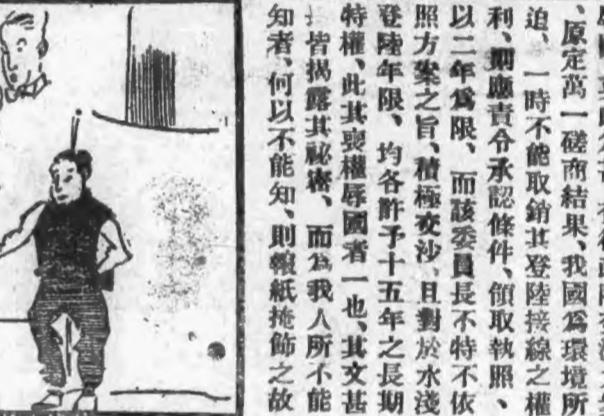 、原定萬一磋商結果、我國爲環境所
迫、一時不能取銷其登陸接線之權
利、則應責令承認條件、領取執照、
以二年爲限、而該委員長不特不依
照方案之旨、積極交沙、且對於水淺
登陸年限、均各許予十五年之長期
特權、此其喪權辱國者一也、其文甚
皆揭露其祕密、而爲我人所不能
知者、何以不能知、則報紙掩飾之故